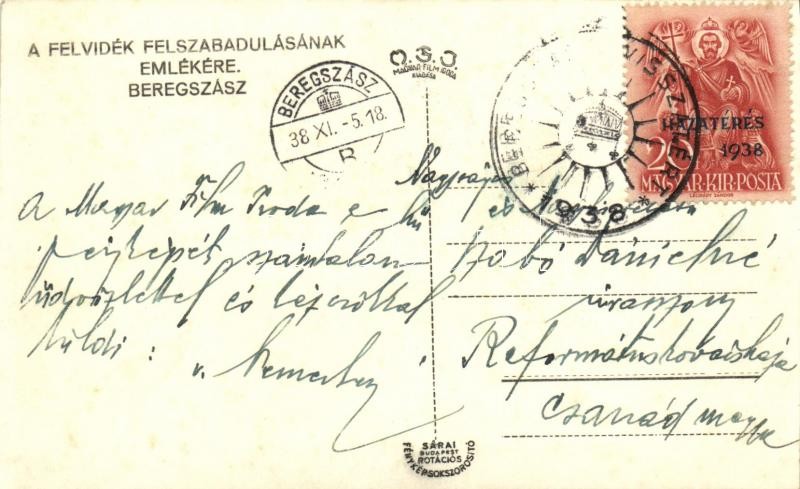 A FELVIDÉK FELSZABADULÁSÁNAK
EMLÉKÉRE.
BEREGSZÁSZ
BEREGSZÁSZ
38 XI. -5.18.
B
MAGYAR FILM IRODA
KIADÁSA
VISSZATÉRT
1938
HAZATÉRÉS
1938
20
MAGYAR·KIR·POSTA
LÉGRÁDY SÁNDOR
A Magyar Film Iroda e hű
fényképét számtalan
üdvözlettel és
küldi:
v.
Nagyságos
és
Szabó Dánielné
úrasszony
Református
Csanád megye
SÁRAI
BUDAPEST
ROTÁCIÓS
FÉNYKÉPSOKSZOROSÍTÓ